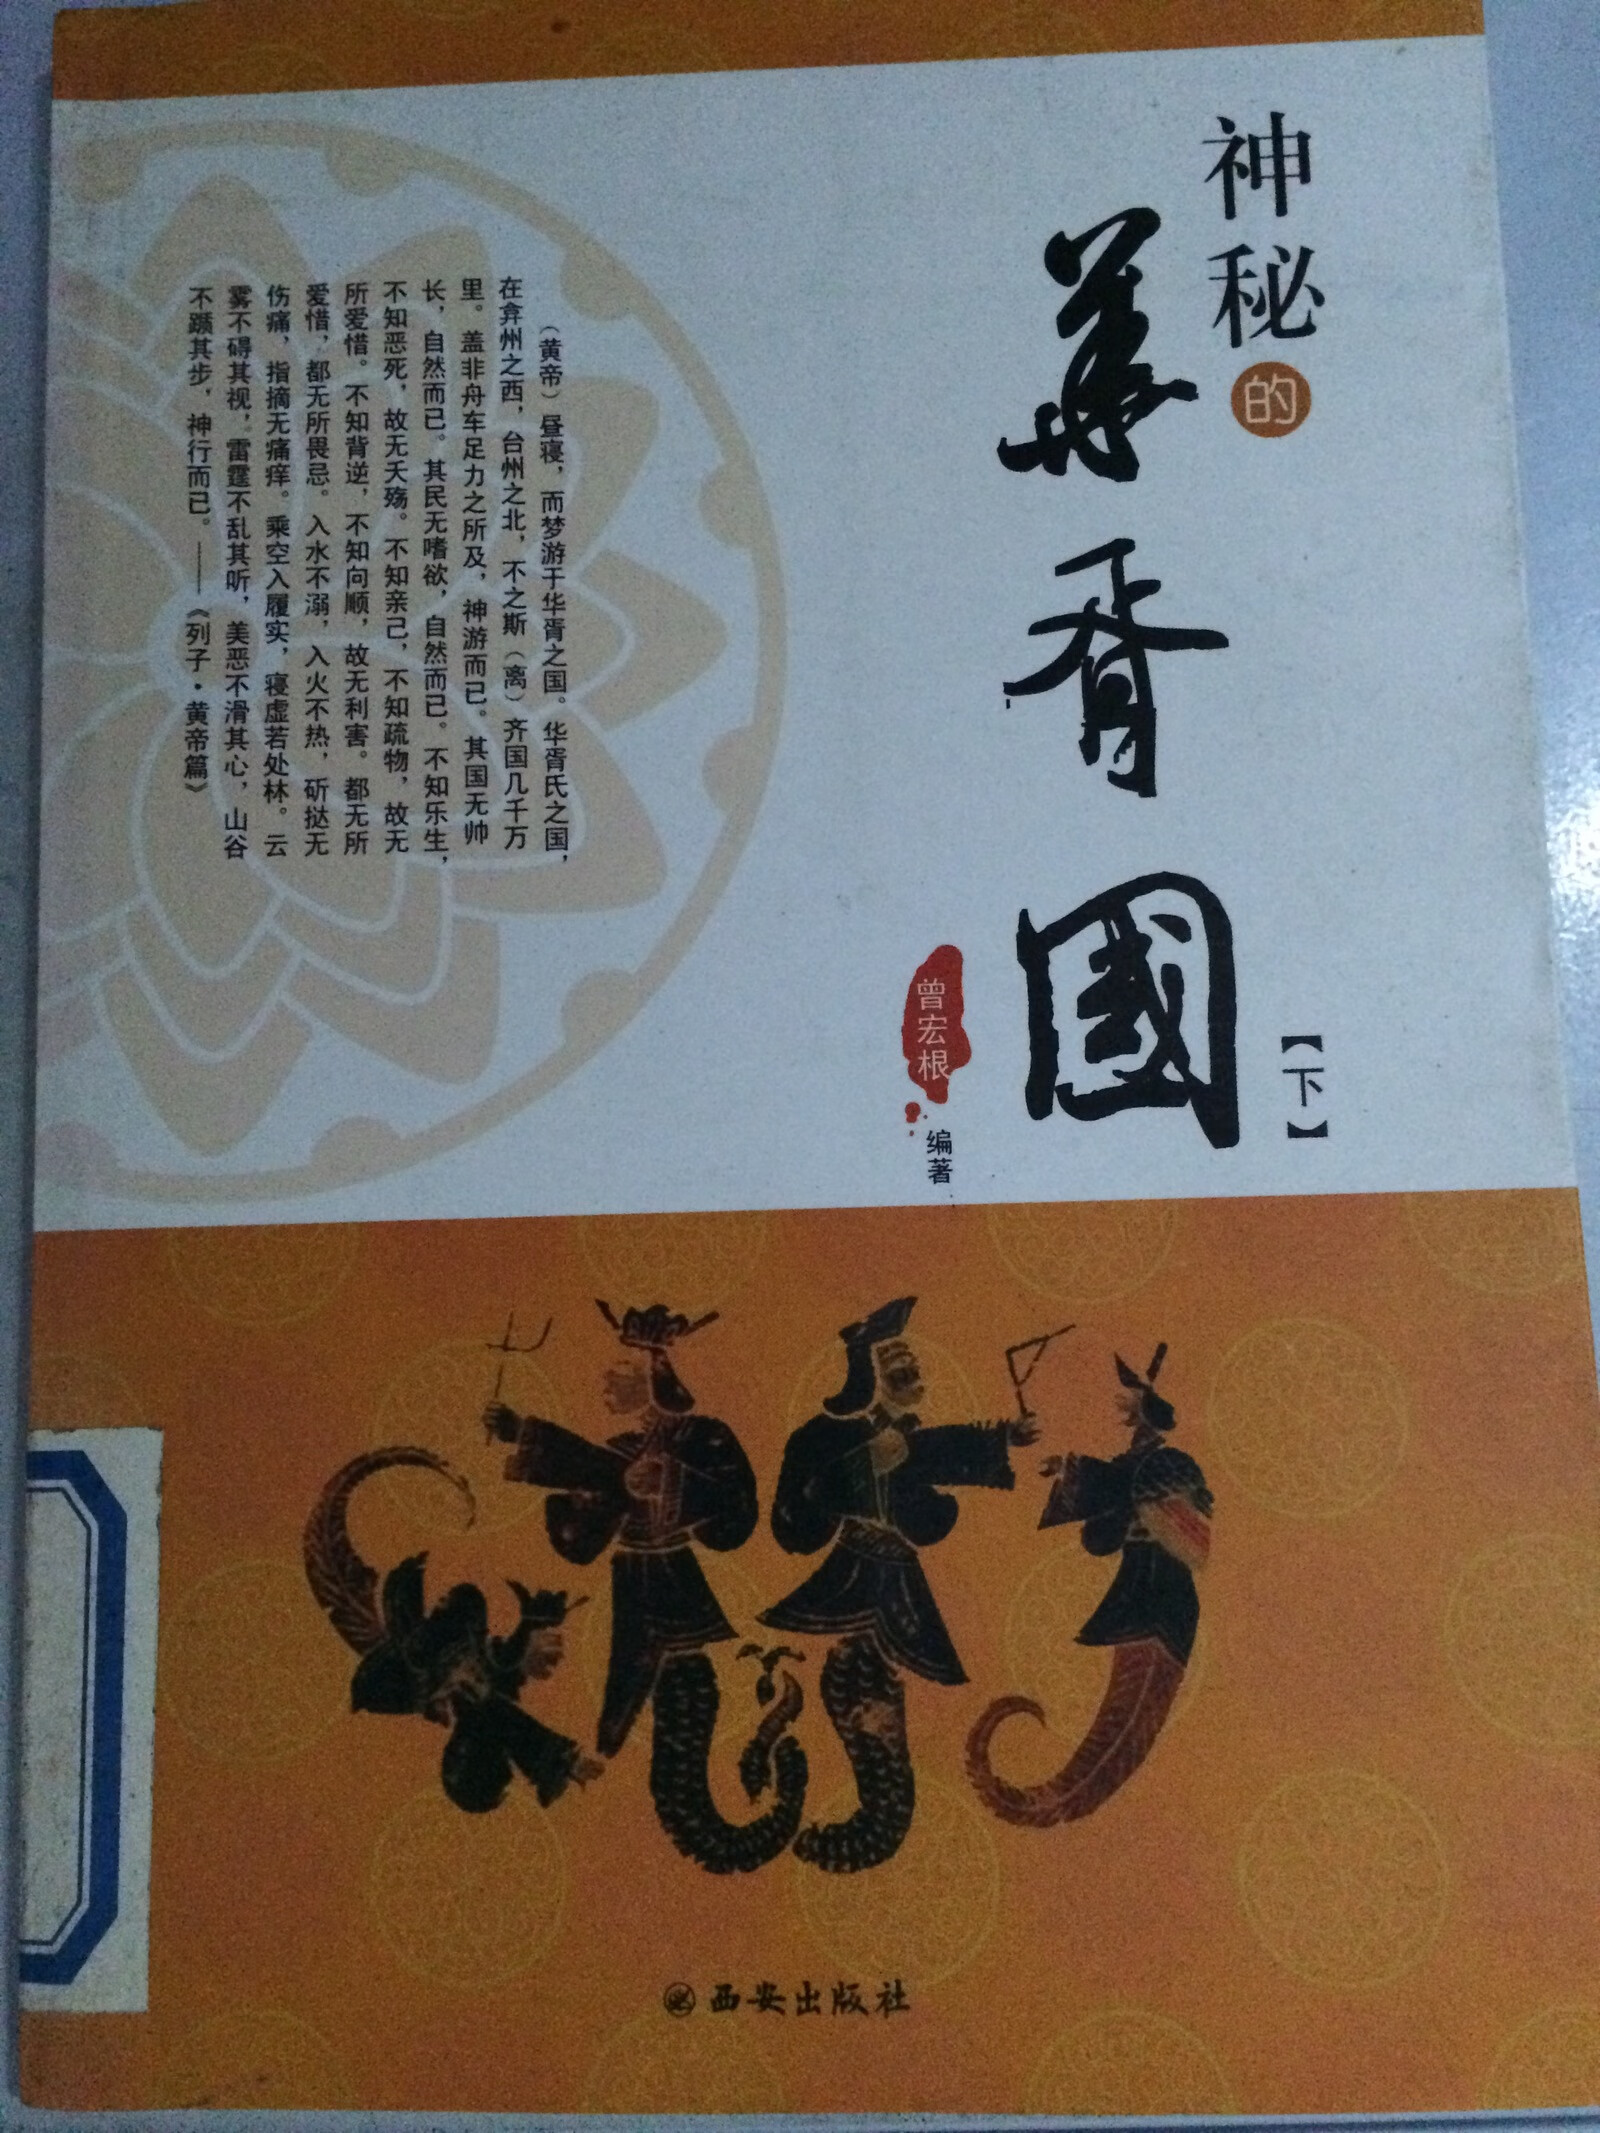 神秘的
華胥國
【下】
曾宏根
编著
（黄帝）昼寝，而梦游于华胥之国。华胥氏之国，
在弇州之西，台州之北，不之斯（离）齐国几千万
里。盖非舟车足力之所及，神游而已。其国无帅
长，自然而已。其民无嗜欲，自然而已。不知乐生，
不知恶死，故无夭殇。不知亲己，不知疏物，故无
所爱惜。不知背逆，不知向顺，故无利害。都无所
爱惜，都无所畏忌。入水不溺，入火不热，斫挞无
伤痛，指摘无痛痒。乘空入履实，寝虚若处林。云
雾不碍其视，雷霆不乱其听，美恶不滑其心，山谷
不踬其步，神行而已。——《列子·黄帝篇》
西安出版社